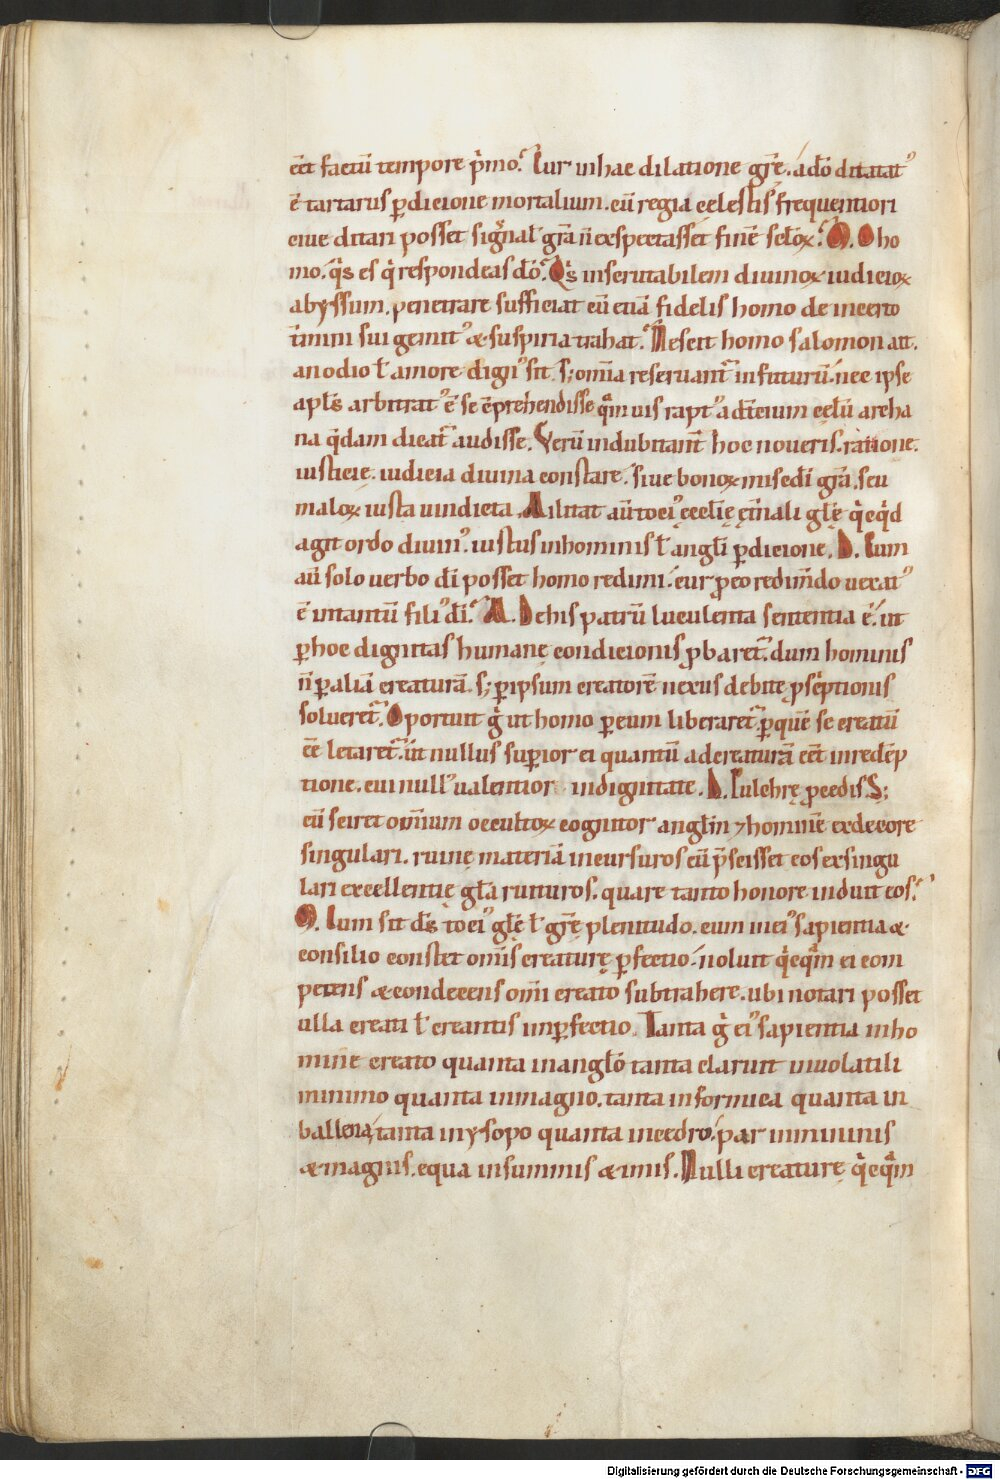 eēt factū tempore p̍mo. Cur in hac dilatione gr̄ę. adō ditatatꝰ
ē tartarus ꝑdicione mortalium. cū regia celestis frequentiori
ciue ditari posset si gr̄a n̄ exspectasset finē sc̄loꝝ. O ho
mo. q̍s es q̍ respondeas dō. Q̍s inscrutabilem diuinoꝝ iudicioꝝ
abyssum. penetrare sufficiat cū etiā fidelis homo de incerto
t̄mini sui gemitꝰ & suspiria trahat. Nescit homo salomon ait.
an odio ł amore dignꝰ sit. s; om̄ia reseruant᷑ in futurū. nec ipse
apl̄s arbitratꝰ ē se c̄prehendisse q̄m uis raptꝰ ad t̄cium cęlū archa
na q̄dam dicat᷑ audisse. Verū indubitant̄ hoc noueris. ratione.
iusticię. iudicia diuina constare. siue bonoꝝ misc̄di gr̄a. seu
maloꝝ iusta uindicta. Militat aū toci' ęccl̄ię ęt̄nali gl̄ę q̍cq̍d
agit ordo diuin'. iustus in hominis ł angl̄i ꝑdicione. D. Cum
aū solo uerbo dī posset homo redimi. cur ꝓ eo redim̄do uexatꝰ
ē in tantū filiꝰ dī. M. De his patrū luculenta sententia ē. ut
ꝑ hoc dignitas humanę condicionis ꝓbaret᷑. dum hominis
n̄ ꝑ aliā creaturā. s; ꝑ ipsum creatorē nexus debitę ꝓsc̄ptionis
solueret᷑. Oportuit g̍ ut homo ꝑ eum liberaret᷑. ꝑ quē se creatū
eē letaret᷑. ut nullus suꝑior ei quantū ad creaturā eēt in redēp
tione. cui null' ualentior in dignitate. D. Pulchrę ꝓcedis. S;
cū sciret om̄ium occultoꝝ cognitor angl̄m ⁊ hominē ex decore
singulari. ruinę materiā incursuros cū p̄scisset eos ex singu
lari excellentię gl̄a ruituros. quare tanto honore induit eos.
M. Cum sit ds̄ toci' gl̄ę ł gr̄ę plenitudo. cum in eiꝰ sapientia &
consilio constet om̄is creaturę ꝑfectio. noluit q̍cq̄m ei com
petens & condecens om̄i creato subtrahere. ubi notari posset
ulla creati ł creantis inꝑfectio. Tanta g̍ eiꝰ sapientia in ho
mine creato quanta in angl̄o tanta claruit in uolatili
minimo quanta in magno. tanta in formica quanta in
ballena. tanta in ysopo quanta in cedro. par in minimis
& magnis. equa in summis & imis. Nulli creaturę q̍cq̄m
Digitalisierung gefördert durch die Deutsche Forschungsgemeinschaft - DFG